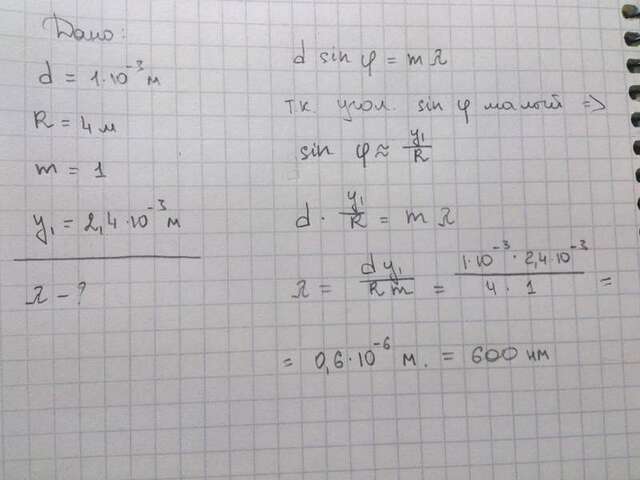 Дано:
d = 1·10⁻³ м
R = 4 м
m = 1
y₁ = 2,4·10⁻³ м
λ - ?
d sin φ = m λ
т.к. угол. sin φ малый =>
sin φ ≈ y₁/R
d · y₁/R = m λ
λ = dy₁/Rm = 1·10⁻³·2,4·10⁻³/4·1 =
= 0,6·10⁻⁶ м. = 600 нм